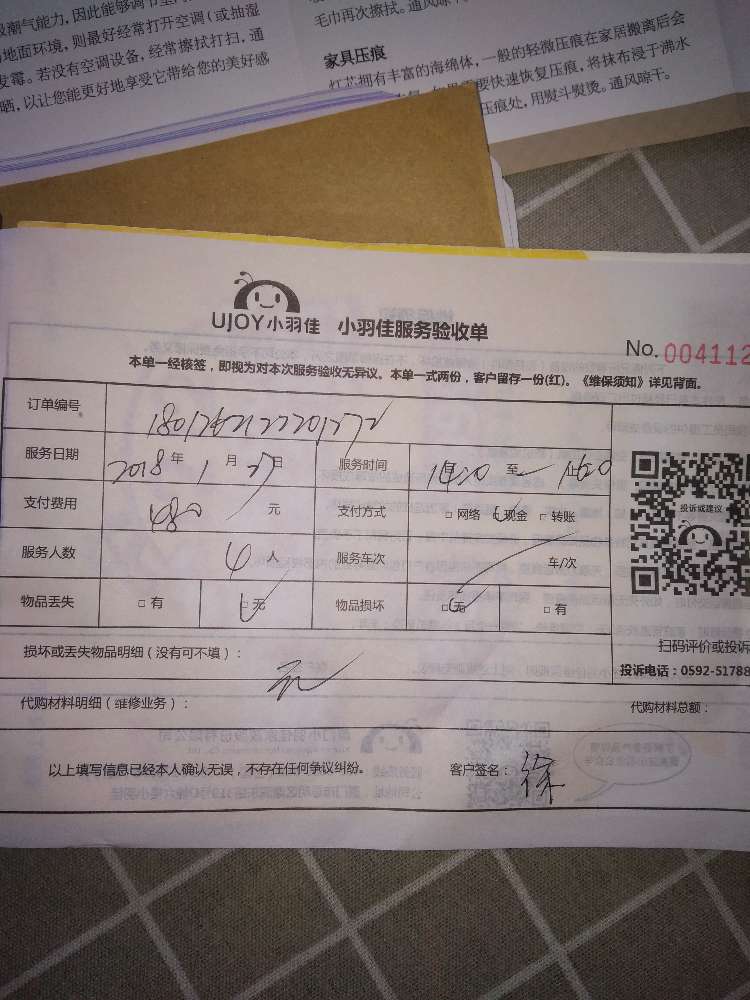 潮气能力，因此能够调节
地面环境，则最好经常打开空调（或抽湿
发霉。若没有空调设备，经常擦拭打扫，通
晒，以让您能更好地享受它带给您的美好感
毛巾再次擦拭。通风晾干。
家具压痕
灯芯拥有丰富的海绵体，一般的轻微压痕在家居搬离后会
要快速恢复压痕，将抹布浸于沸水
压痕处，用熨斗熨烫。通风晾干。
UJOY小羽佳 小羽佳服务验收单
No. 004112
本单一经核签，即视为对本次服务验收无异议。本单一式两份，客户留存一份(红)。《维保须知》详见背面。
订单编号
服务日期 2018 年 1 月 27 日 服务时间 至 止
支付费用 480 元 支付方式 □ 网络 □ 现金 □ 转账
服务人数 4 人 服务车次 车/次
物品丢失 □ 有 □ 无 物品损坏 □ 无 □ 有
投诉或建议
扫码评价或投诉
投诉电话：0592-51788
损坏或丢失物品明细（没有可不填）： 无
代购材料明细（维修业务）： 代购材料总额：
以上填写信息已经本人确认无误，不存在任何争议纠纷。 客户签名： 徐